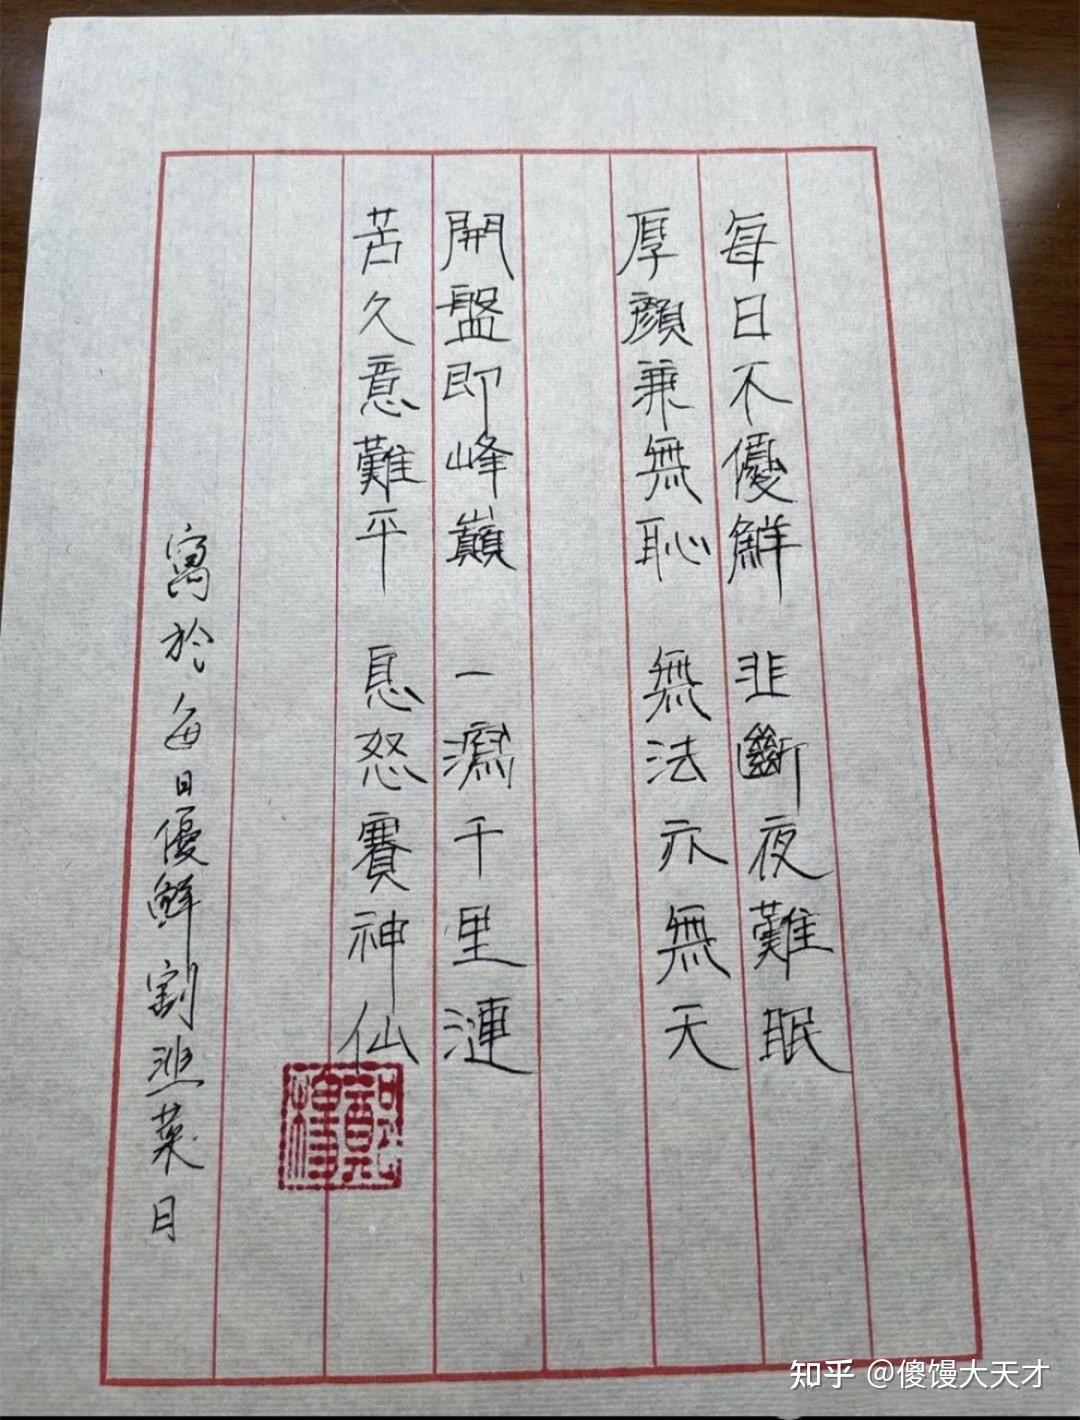 每日不優鮮 韭斷夜難眠
厚顏兼無恥 無法亦無天
開盤即峰巔 一瀉千里漣
苦久意難平 息怒賽神仙
寫於每日優鮮割韭菜日
知乎 @傻馒大天才